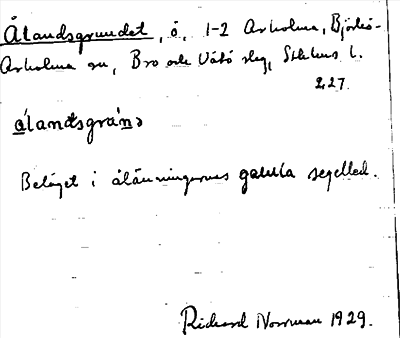 Ålandsgrundet, ö, 1-2 Arholma, Björkö-
Arholma sn, Bro och Vätö slg, Sthlms l.
2,27.
álandsgrún>
Beläget i ålänningarnes gamla segelled.
Rickard Norrman 1929.